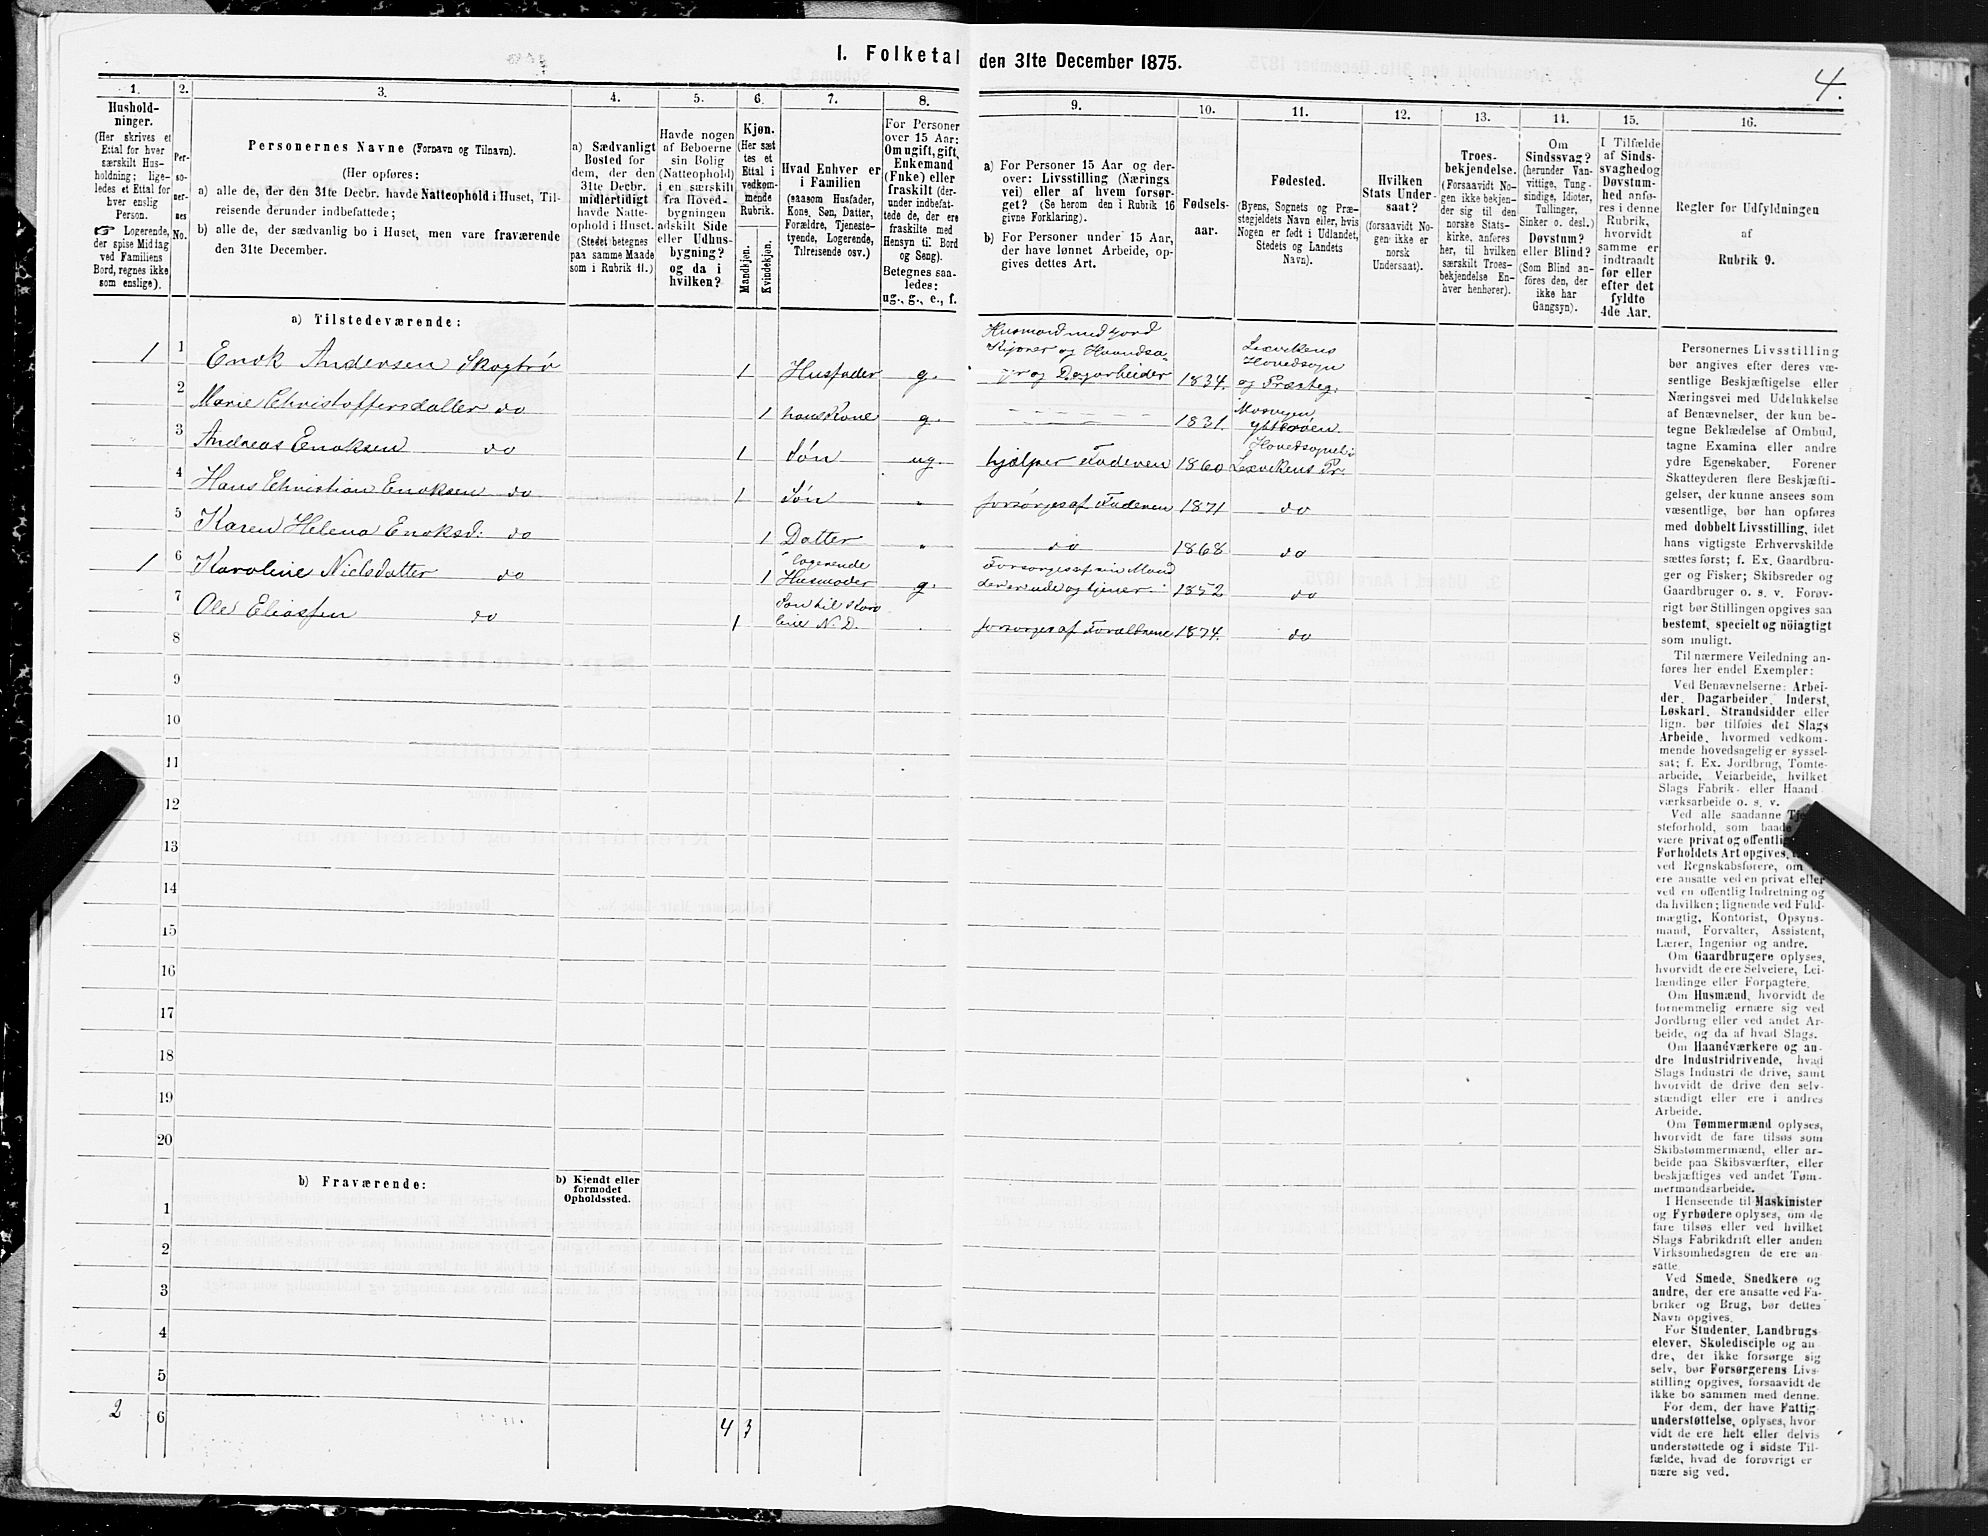 I. Folketal den 31te December 1875.
4.
1.
Hushold-
ninger.
(Her skrives et
Ettal for hver
særskilt Hus-
holdning; lige-
ledes et Ettal for
hver enslig
Person.
☞ Logerende,
der spise Middag
ved Familiens
Bord, regnes ikke
som enslige).
2.
Per-
so-
ner-
nes
No.
3.
Personernes Navne (Fornavn og Tilnavn).
(Her opføres:
a) alle de, der den 31te Decbr. havde Natteophold i Huset, Til-
reisende derunder indbefattede;
b) alle de, der sædvanlig bo i Huset, men vare fraværende
den 31te December.
4.
a) Sædvanligt
Bosted for
dem, der den
31te Decbr.
midlertidigt
havde Natte-
ophold i Huset.
(Stedet betegnes
paa samme Maade
som i Rubrik 11.)
5.
Havde nogen
af Beboerne
sin Bolig
(Natteophold)
i en særskilt
fra Hoved-
bygningen
adskilt Side
eller Udhus-
bygning?
og da i
hvilken?
6.
Kjøn.
(Her sæt
tes et
Ettal i
vedkom-
mende
Rubrik.
Mandkjøn.
Kvindekjøn.
7.
Hvad Enhver er
i Familien
(saasom Husfader,
Kone, Søn, Datter,
Forældre, Tjeneste-
tyende, Logerende,
Tilreisende osv.)
8.
For Personer
over 15 Aar:
Om ugift, gift,
Enkemand
(Enke) eller
fraskilt (der-
under indbefat-
tede de, der ere
fraskilte med
Hensyn til Bord
og Seng).
Betegnes saa-
ledes:
ug., g., e., f.
9.
a) For Personer 15 Aar og der-
over: Livsstilling (Nærings
vei) eller af hvem forsør-
get? (Se herom den i Rubrik 16
givne Forklaring).
b) For Personer under 15 Aar,
der have lønnet Arbeide, op-
gives dettes Art.
10.
Fødsels-
aar.
11.
Fødested.
(Byens, Sognets og Præ-
stegjeldets Navn eller, hvis
Nogen er født i Udlandet,
Stedets og Landets
Navn).
12.
Hvilken
Stats Under-
saat?
(forsaavidt No-
gen ikke er
norsk
Undersaat).
13.
Troes-
bekjendelse.
(Forsaavidt No-
gen ikke bekjen-
der sig til den
norske Stats-
kirke, anføres
her, til hvilken
særskilt Troes-
bekjendelse En-
hver henhører).
14.
Om
Sindssvag?
(herunder Van-
vittige, Tung-
sindige, Idioter,
Tullinger,
Sinker o. desl.)
Døvstum?
eller Blind?
(Som Blind an-
føres den, der
ikke har
Gangsyn).
15.
I Tilfælde
af Sinds-
svaghed og
Døvstum-
hed anfø-
res i denne
Rubrik,
hvorvidt
samme er
indtraadt
før eller
efter det
fyldte
4de Aar.
16.
Regler for Udfyldningen
af
Rubrik 9.
a) Tilstedeværende:
1 1 Enok Andersen Skogtrø 1 Husfader g. Husmand med Jord
og Dagarbeider 1834. Lexvikens
Hovedsogn
og Præsteg.
2 Marie Christoffersdatter do 1 hans Kone g. 1831. Mosvigen
Ytterøen
3 Andreas Enoksen do 1 Søn ug. hjælper Faderen 1860 Hovedsognet i
Lexvikens Pr
4 Hans Christian Enoksen do 1 Søn " forsørges af Faderen 1871 do
5 Karen Helena Enoksd: do 1 Datter " do 1868 do
1 6 Karoline Nielsdatter do 1 logerende
Husmoder g. Forsørges af sin Mand
der er ude og tjener 1852 do
7 Ole Eliassen do 1 Søn til Karo
line N. D. . forsørges af Forældrene 1874. do
8
9
10
11
12
13
14
15
16
17
18
19
20
b) Fraværende:
b) Kjendt eller
formodet
Opholdssted.
1
2
3
4
5
2 6 4 3
Personernes Livsstilling
bør angives efter deres væ-
sentlige Beskjæftigelse eller
Næringsvei med Udelukkelse
af Benævnelser, der kun be-
tegne Beklædelse af Ombud,
tagne Examina eller andre
ydre Egenskaber. Forener
Skatteyderen flere Beskjæfti-
gelser, der kunne ansees som
væsentlige, bør han opføres
med dobbelt Livsstilling, idet
hans vigtigste Erhvervskilde
sættes først; f. Ex. Gaardbru-
ger og Fisker; Skibsreder og
Gaardbruger o. s. v. Forøv-
rigt bør Stillingen opgives saa
bestemt, specielt og nöiagtigt
som muligt.
Til nærmere Veiledning an-
føres her endel Exempler:
Ved Benævnelserne: Arbei-
der, Dagarbeider, Inderst,
Løskarl, Strandsidder eller
lign. bør tilføies det Slags
Arbeide, hvormed vedkom-
mende hovedsagelig er syssel-
sat; f. Ex. Jordbrug, Tomte-
arbeide, Veiarbeide, hvilket
Slags Fabrik- eller Haand-
værksarbeide o. s. v.
Ved alle saadanne
steforhold, som baade
være privat og offentlig
Forholdets Art opgives,
ved Regnskabsførere, om
ere ansatte ved en privat eller
ved en offentlig Indretning og
da hvilken; lignende ved Fuld-
mægtig, Kontorist, Opsyns-
mand, Forvalter, Assistent,
Lærer, Ingeniør og andre.
Om Gaardbrugere oplyses,
hvorvidt de ere Selveiere, Lei-
lændinge eller Forpagtere.
Om Husmænd, hvorvidt de
fornemmelig ernære sig ved
Jordbrug eller ved andet Ar-
beide, og da af hvad Slags.
Om Haandværkere og an-
dre Industridrivende, hvad
Slags Industri de drive, samt
hvorvidt de drive den selv-
stændigt eller ere i andres
Arbeide.
Om Tømmermænd oplyses,
hvorvidt de fare tilsøs som
Skibstømmermænd, eller ar-
beide paa Skibsværfter, eller
beskjæftiges ved andet Tøm-
mermandsarbeide.
I Henseende til Maskinister
og Fyrbødere oplyses, om de
fare tilsøs eller ved hvilket
Slags Fabrikdrift eller anden
Virksomhedsgren de ere an-
satte.
Ved Smede, Snedkere og
andre, der ere ansatte ved Fa-
briker og Brug, bør dettes
Navn opgives.
For Studenter, Landbrugs
elever, Skoledisciple og an
dre, der ikke forsørge sig
selv, bør Forsørgerens Livs-
stilling opgives, forsaavidt de
ikke bo sammen med denne.
For dem, der have Fattig
understøttelse, oplyses, hvor
vidt de ere helt eller delvis
understøttede og i sidste Til-
fælde, hvad de forøvrigt er
nære sig ved.